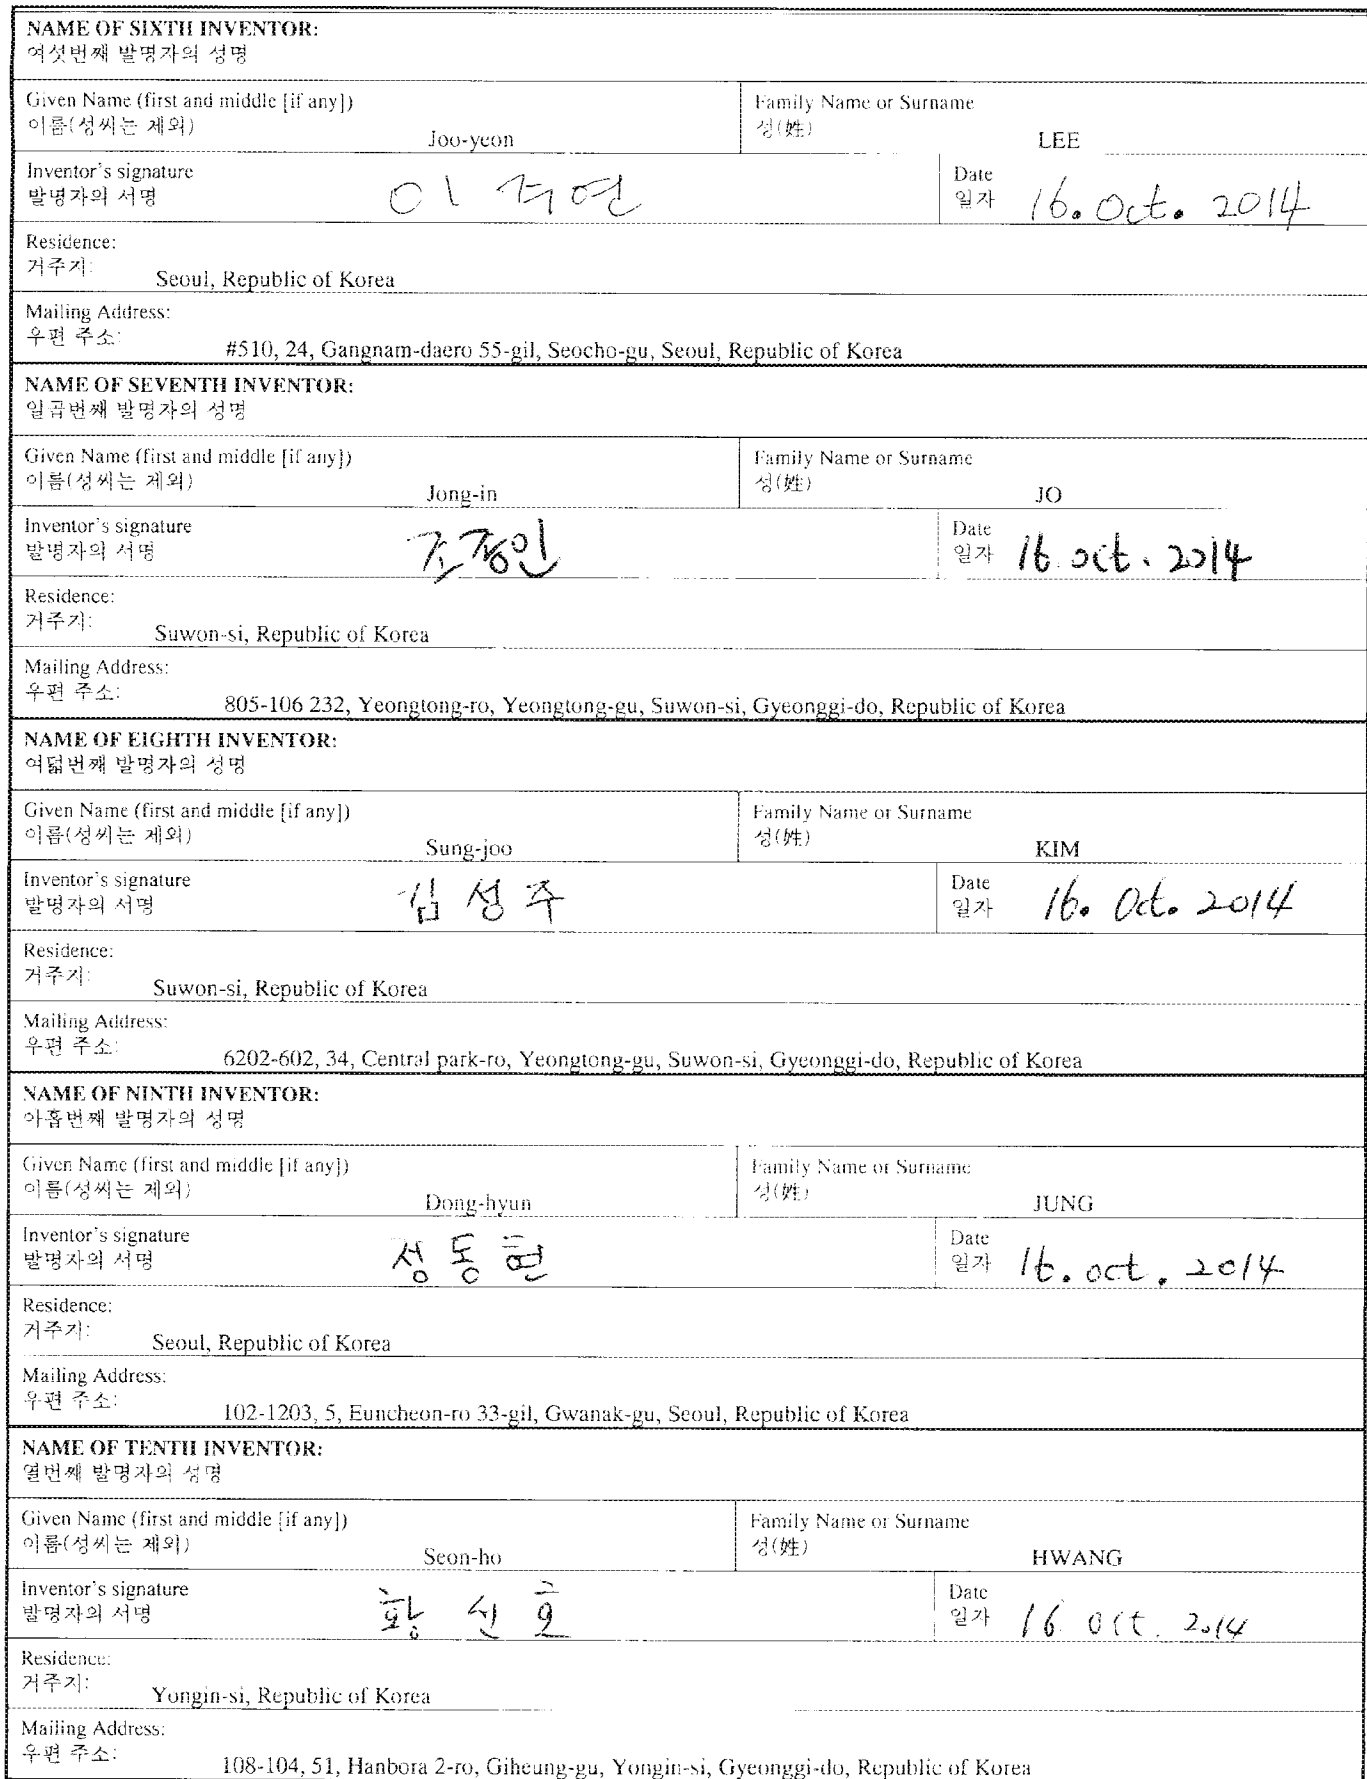 NAME OF SIXTH INVENTOR:
여섯번째 발명자의 성명
Given Name (first and middle [if any])
이름(성씨는 제외)
Joo-yeon
Family Name or Surname
성(姓)
LEE
Inventor's signature
발명자의 서명
이 주연
Date
일자
16. Oct. 2014
Residence:
거주지:
Seoul, Republic of Korea
Mailing Address:
우편 주소:
#510, 24, Gangnam-daero 55-gil, Seocho-gu, Seoul, Republic of Korea
NAME OF SEVENTH INVENTOR:
일곱번째 발명자의 성명
Given Name (first and middle [if any])
이름(성씨는 제외)
Jong-in
Family Name or Surname
성(姓)
JO
Inventor's signature
발명자의 서명
조종인
Date
일자
16 oct. 2014
Residence:
거주지:
Suwon-si, Republic of Korea
Mailing Address:
우편 주소:
805-106 232, Yeongtong-ro, Yeongtong-gu, Suwon-si, Gyeonggi-do, Republic of Korea
NAME OF EIGHTH INVENTOR:
여덟번째 발명자의 성명
Given Name (first and middle [if any])
이름(성씨는 제외)
Sung-joo
Family Name or Surname
성(姓)
KIM
Inventor's signature
발명자의 서명
김 성 주
Date
일자
16. Oct. 2014
Residence:
거주지:
Suwon-si, Republic of Korea
Mailing Address:
우편 주소:
6202-602, 34, Central park-ro, Yeongtong-gu, Suwon-si, Gyeonggi-do, Republic of Korea
NAME OF NINTH INVENTOR:
아홉번째 발명자의 성명
Given Name (first and middle [if any])
이름(성씨는 제외)
Dong-hyun
Family Name or Surname
성(姓)
JUNG
Inventor's signature
발명자의 서명
정 동 현
Date
일자
16. oct. 2014
Residence:
거주지:
Seoul, Republic of Korea
Mailing Address:
우편 주소:
102-1203, 5, Euncheon-ro 33-gil, Gwanak-gu, Seoul, Republic of Korea
NAME OF TENTH INVENTOR:
열번째 발명자의 성명
Given Name (first and middle [if any])
이름(성씨는 제외)
Seon-ho
Family Name or Surname
성(姓)
HWANG
Inventor's signature
발명자의 서명
황 선 호
Date
일자
16 oct. 2014
Residence:
거주지:
Yongin-si, Republic of Korea
Mailing Address:
우편 주소:
108-104, 51, Hanbora 2-ro, Giheung-gu, Yongin-si, Gyeonggi-do, Republic of Korea